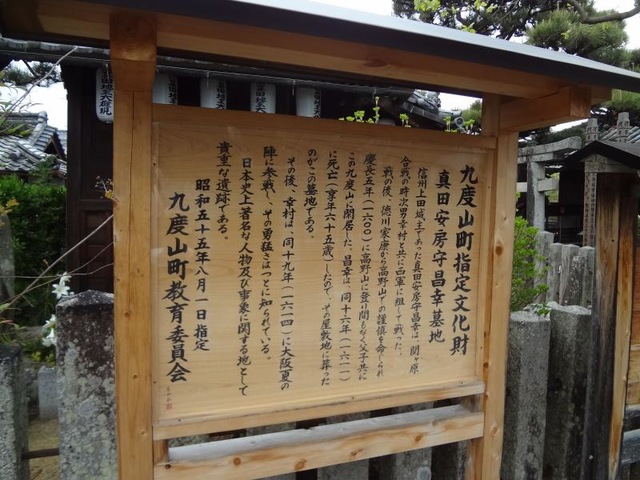 九度山町指定文化財
真田安房守昌幸墓地
信州上田城主であった真田安房守昌幸は、関ヶ原
合戦の時次男幸村と共に西軍に組して戦った。
戦の後、徳川家康から高野山での謹慎を命じられ
慶長五年(一六〇〇)に高野山に登り間もなく父子共に
この九度山に閉居した。昌幸は、同十六年(一六一一)
に死亡(享年六十五歳)したので、その屋敷地に葬った
のがこの墓地である。
その後、幸村は、同十九年(一六一四)に大阪夏の
陣に参戦し、その勇猛さはつとに知られている。
日本史上著名な人物及び事象に関する地として
貴重な遺跡である。
昭和五十五年八月一日指定
九度山町教育委員会